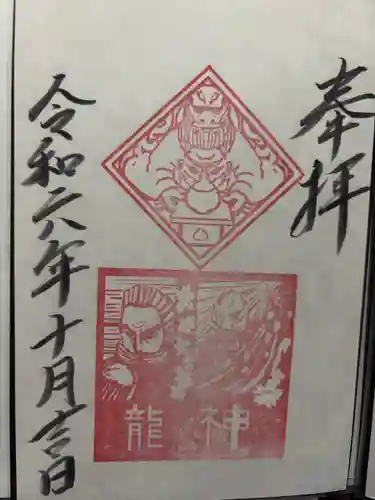 奉拝
龍神
令和六年十月吉日